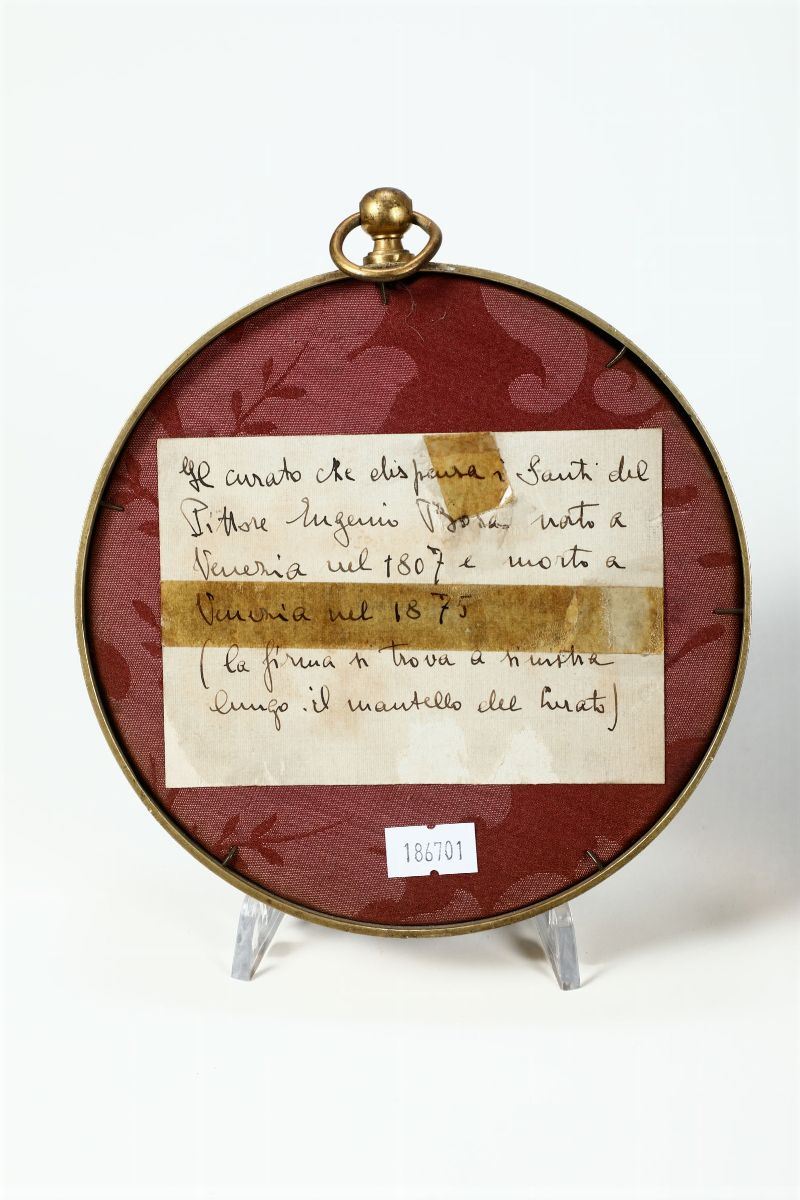 Il curato che dispensa i Santi del
Pittore Eugenio Bosa nato a
Venezia nel 1807 e morto a
Venezia nel 1875
(la firma si trova a sinistra
lungo il mantello del Curato)
186701